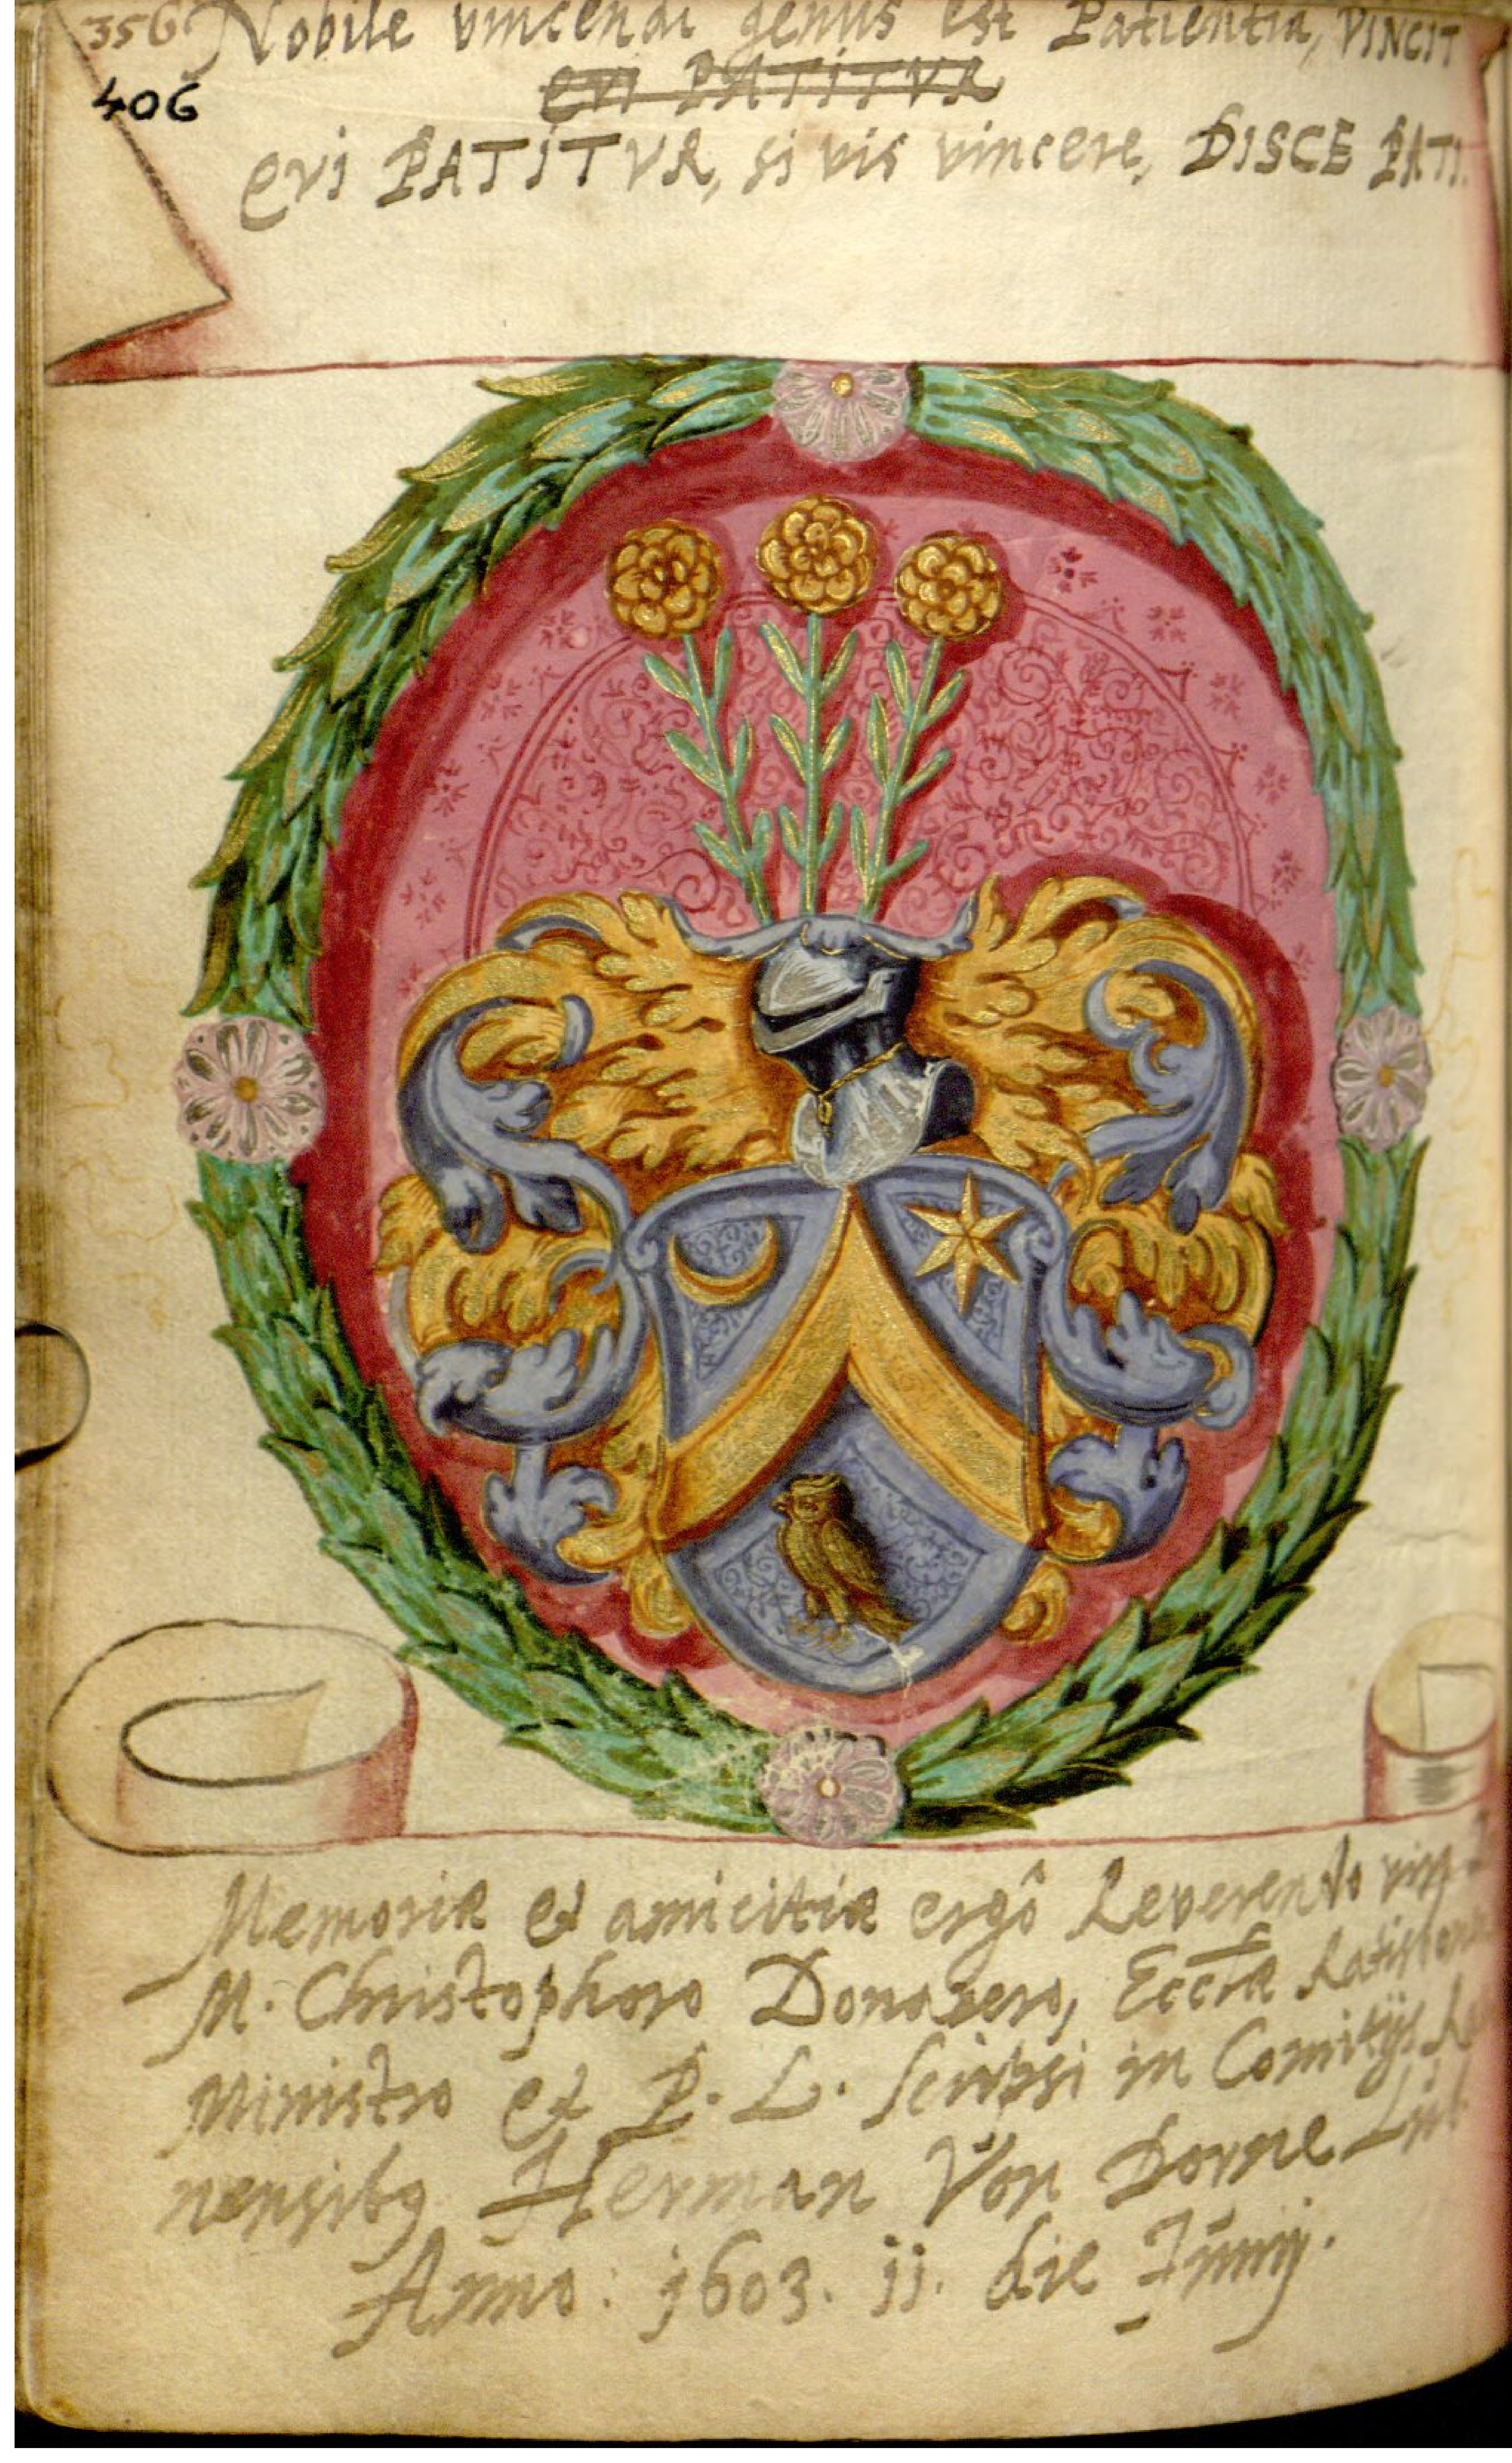 356 Nobile vincendi genus est Patientia, VINCIT
406
QVI PATITVR
QVI PATITVR, si vis vincere, DISCE PATI.
Memoriæ et amicitiæ ergô Reverendo viro
M. Christophoro Donavero, Ecclæ Ratisbonen
Ministro et P. L. scripsi in Comitijs
nensibq Herman Von Dorne Lub
Anno: 1603. 11. die Junij.